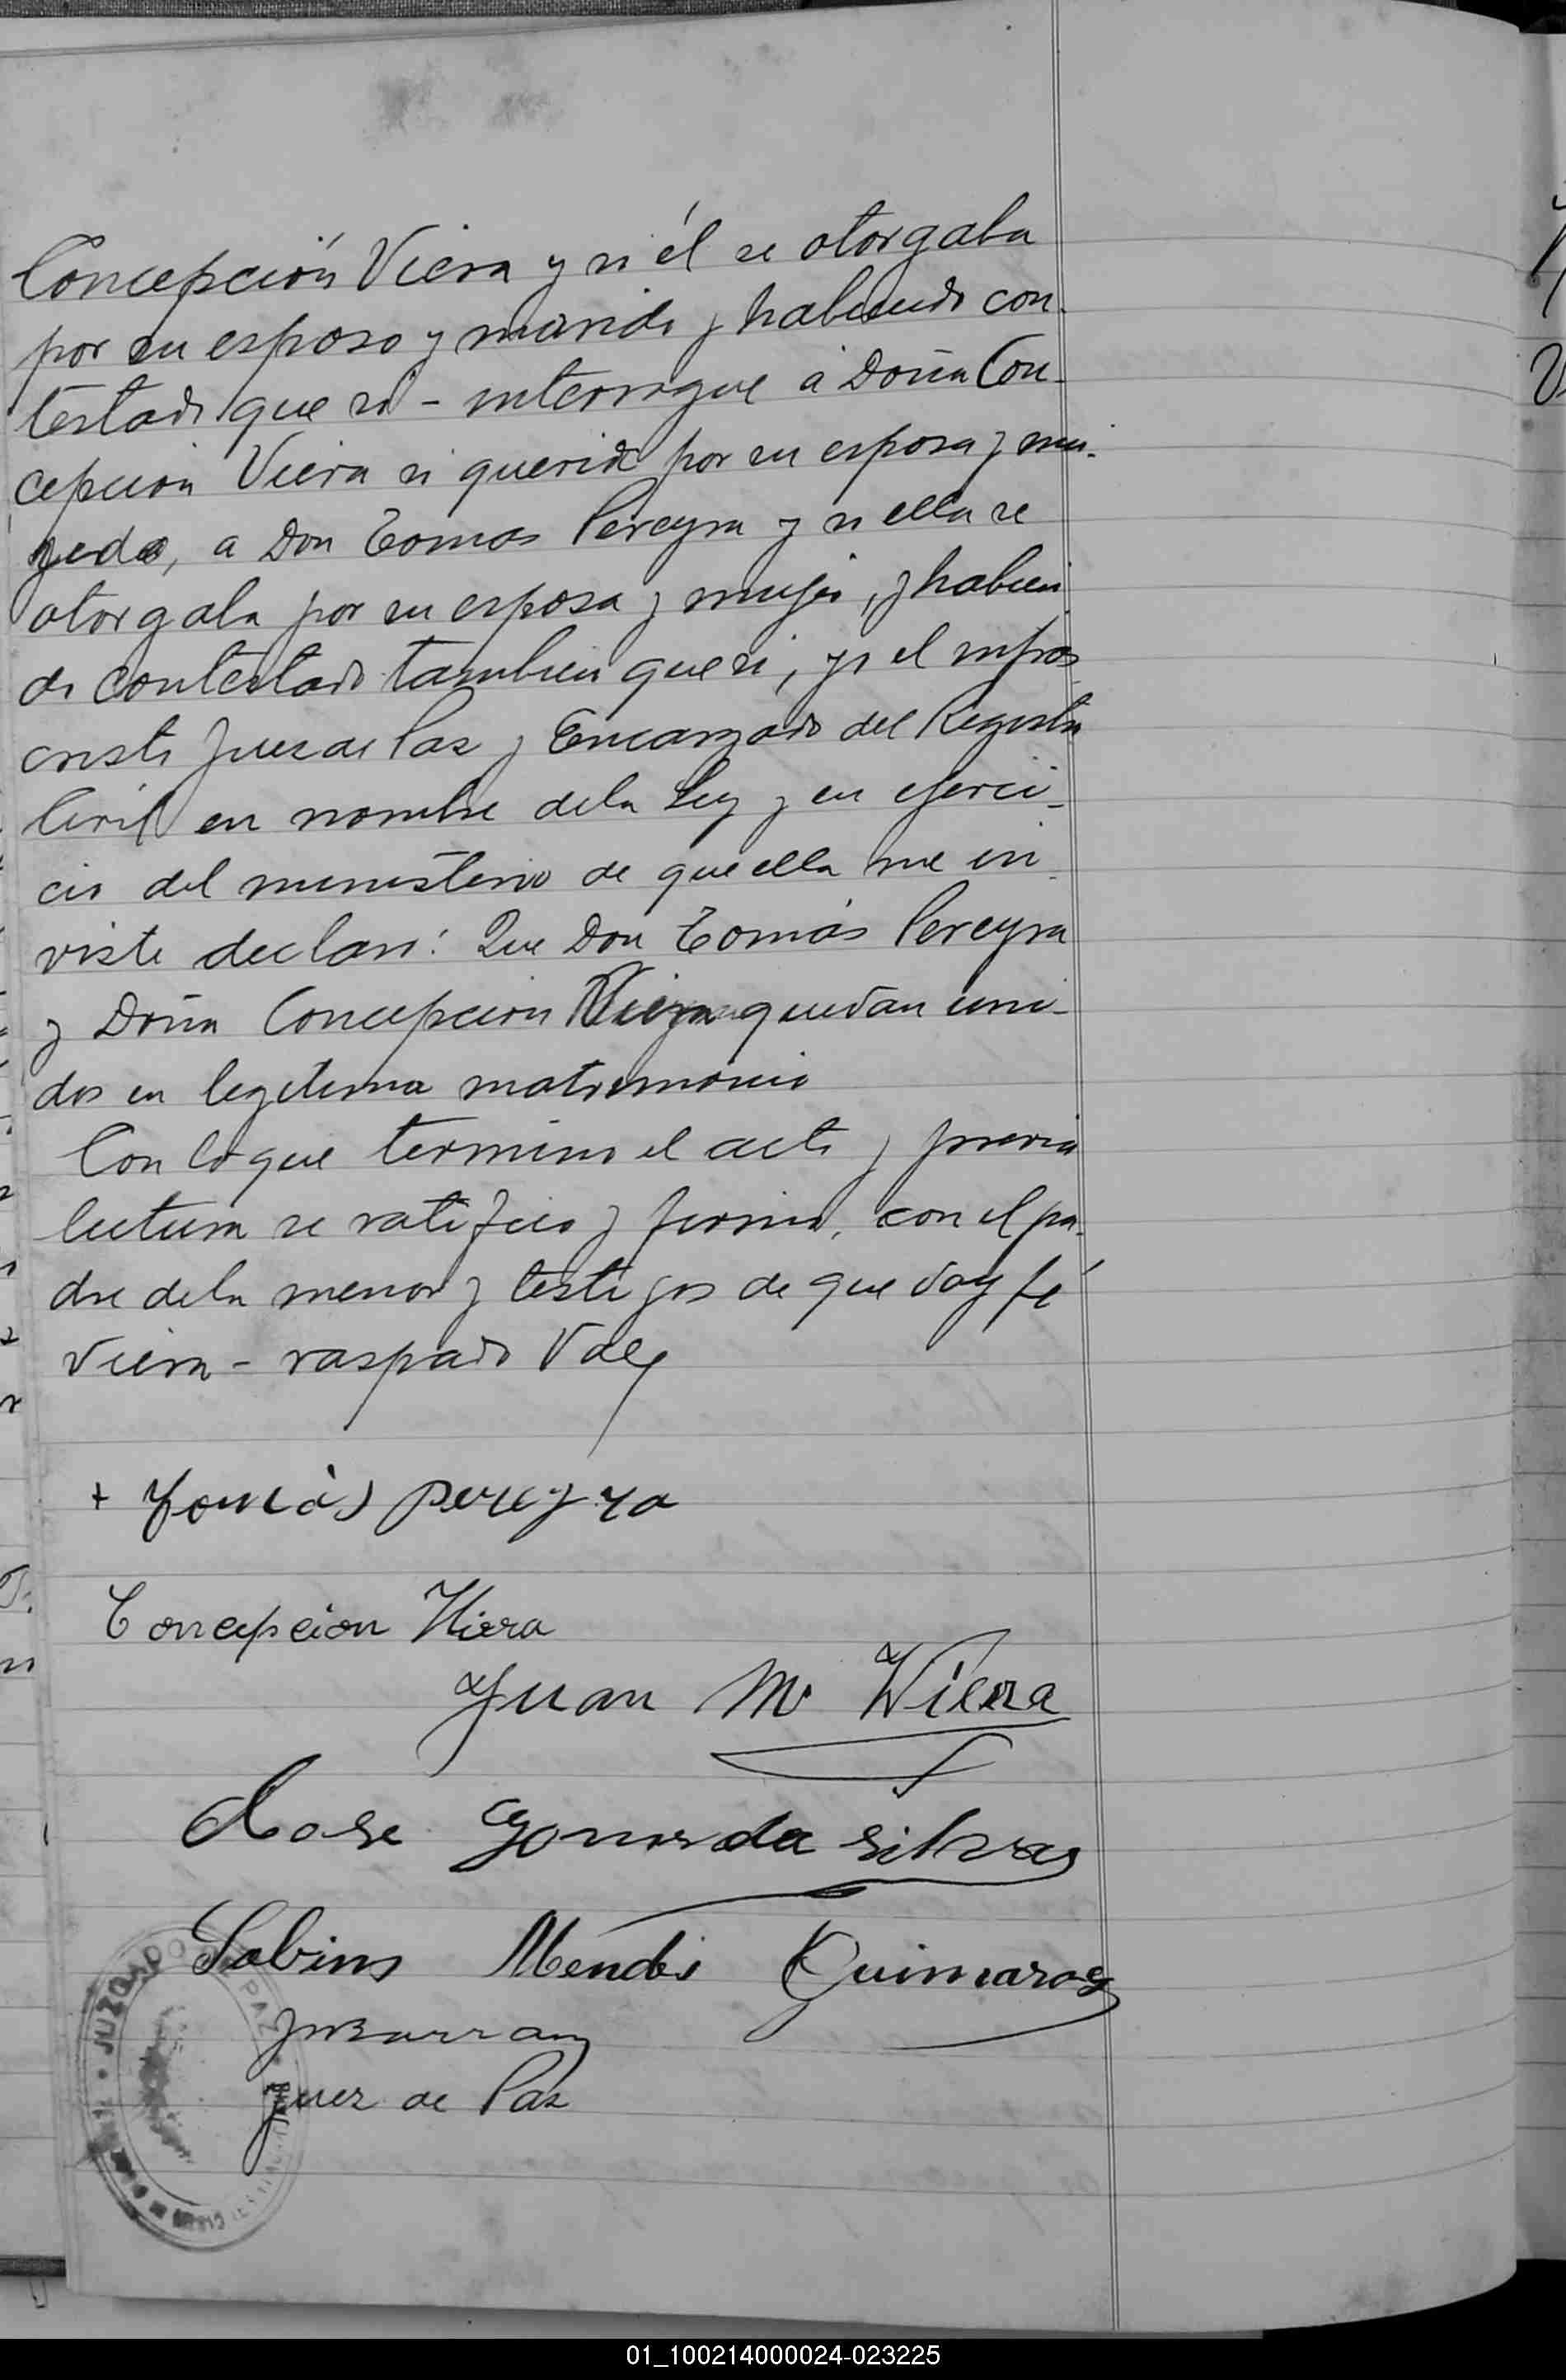 Concepción Viera y si él se otorgaba
por su esposo y marido y habiendo con-
testado que si - interrogue a Doña Con-
cepcion Viera si queria por su esposa y
a Don Tomas Pereyra y si ella se
otorgaba por su esposa y mujer, y habien
do contestado tambien que si, yo el infras
cristo Juez de Paz y Encargado del Registro
Civil en nombre de la Ley y en ejerci-
cio del ministerio de que ella me in-
viste declaro: Que Don Tomás Pereyra
y Doña Concepcion Viera quedan uni-
dos en legitimo matrimonio
Con lo que termino el acto y previa
lectura se ratifico y firmo, con el pa-
dre de la menor y testigos de que doy fé
Viera - raspado Vale
+ Tomás pereyra
Concepcion Viera
Juan M. Viera
Jose Gomes da Silva
Sabino Mendes Guimaraes
Juez de Paz
JUZGADO DE PAZ
01_100214000024-023225